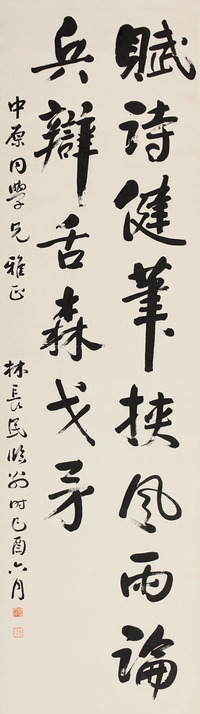 賦詩健筆挾風雨論
兵辯舌森戈矛
中原同學兄雅正
林長民臨翁時己酉六月